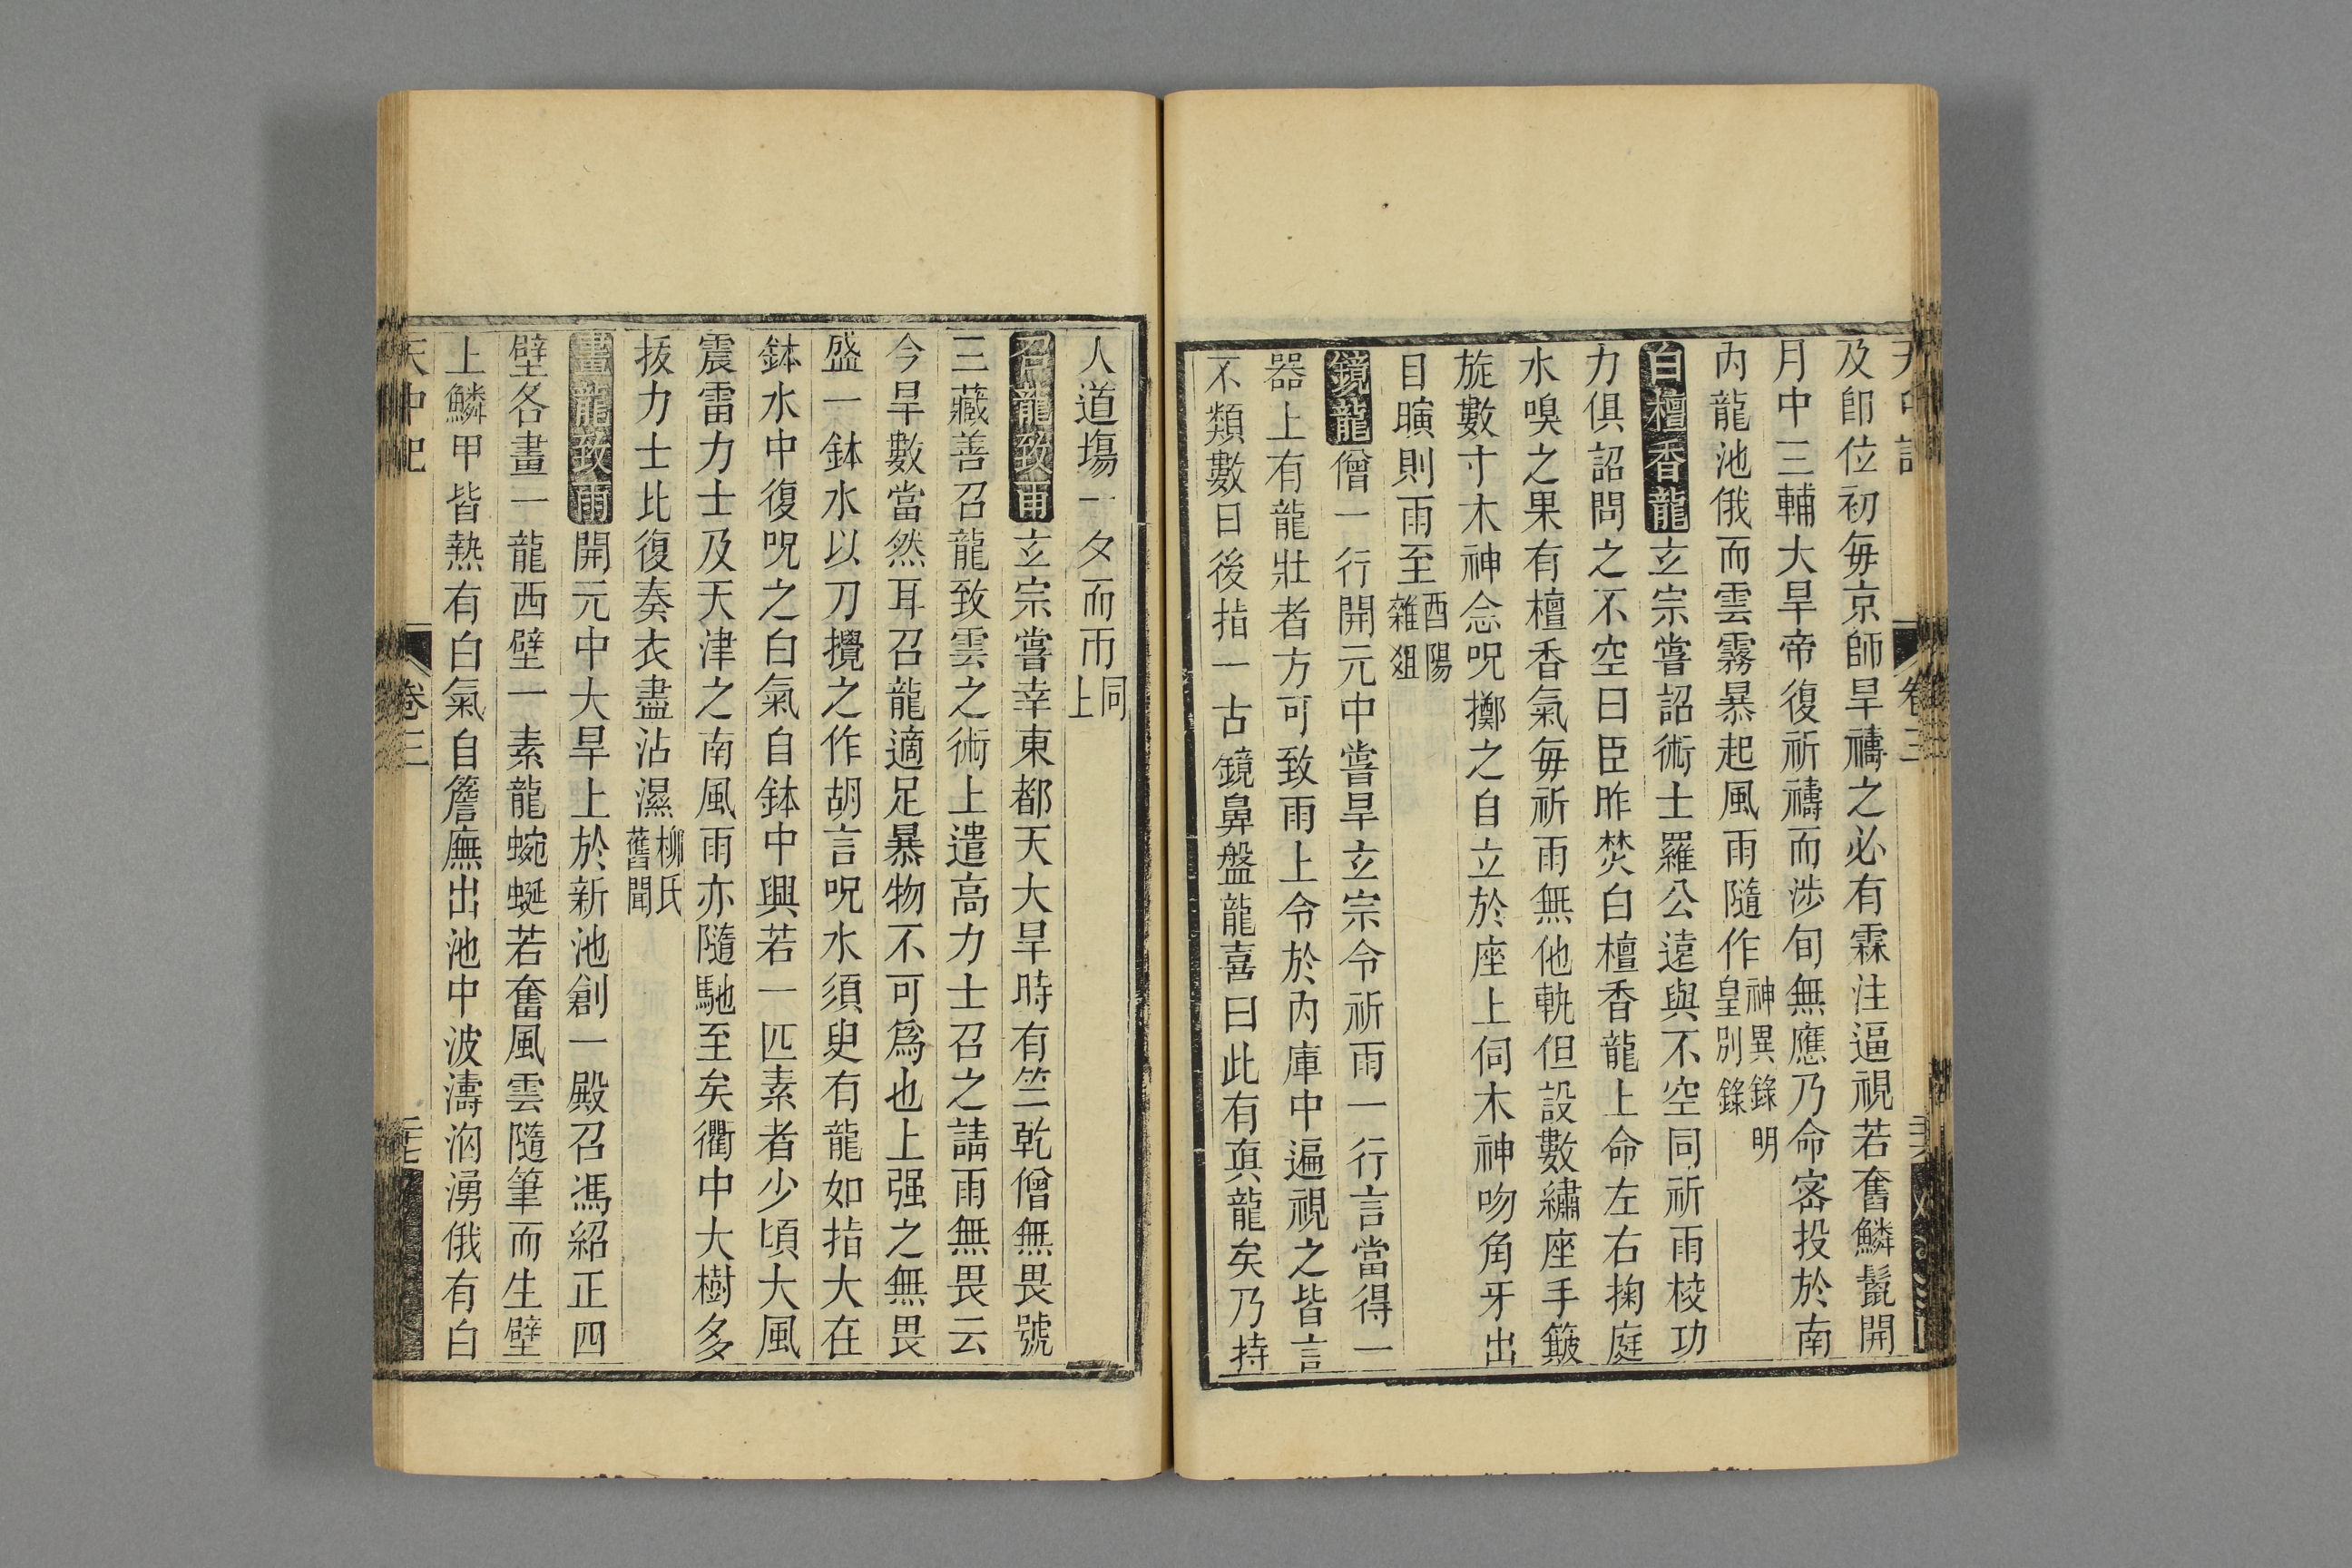 及卽位初每京師旱禱之必有霖注逼視若奮鱗鬣開
月中三輔大旱帝復祈禱而涉旬無應乃命宻投於南
内龍池俄而雲霧暴起風雨隨作神異錄明皇別錄
白檀香龍玄宗嘗詔術士羅公遠與不空同祈雨棱功
力俱詔問之不空曰臣昨焚白檀香龍上命左右掬庭
水嗅之果有檀香氣每祈雨無他軌但設數繡座手簸
旋數寸木神念呪擲之自立於座上伺木神吻角牙出
目瞚則雨至酉陽雜爼
鏡龍僧一行開元中嘗旱玄宗令祈雨一行言當得一
器上有龍壯者方可致雨上令於内庫中遍視之皆言
不類數日後指一古鏡鼻盤龍喜曰此有眞龍矣乃持
人道場一夕而雨同上
召龍致雨玄宗嘗幸東都天大旱時有竺乾僧無畏號
三藏善召龍致雲之術上遣高力士召之請雨無畏云
今旱數當然耳召龍適足暴物不可爲也上强之無畏
盛一鉢水以刀攪之作胡言呪水須臾有龍如指大在
鉢水中復呪之白氣自鉢中興若一匹素者少頃大風
震雷力士及天津之南風雨亦隨馳至矣衢中大樹多
拔力士比復奏衣盡沾濕柳氏舊聞
畫龍致雨開元中大旱上於新池創一殿召馮紹正四
壁各畫一龍西壁一素龍蜿蜒若奮風雲隨筆而生壁
上鱗甲皆熱有白氣自簷廡出池中波濤洶湧俄有白
天中記 卷三